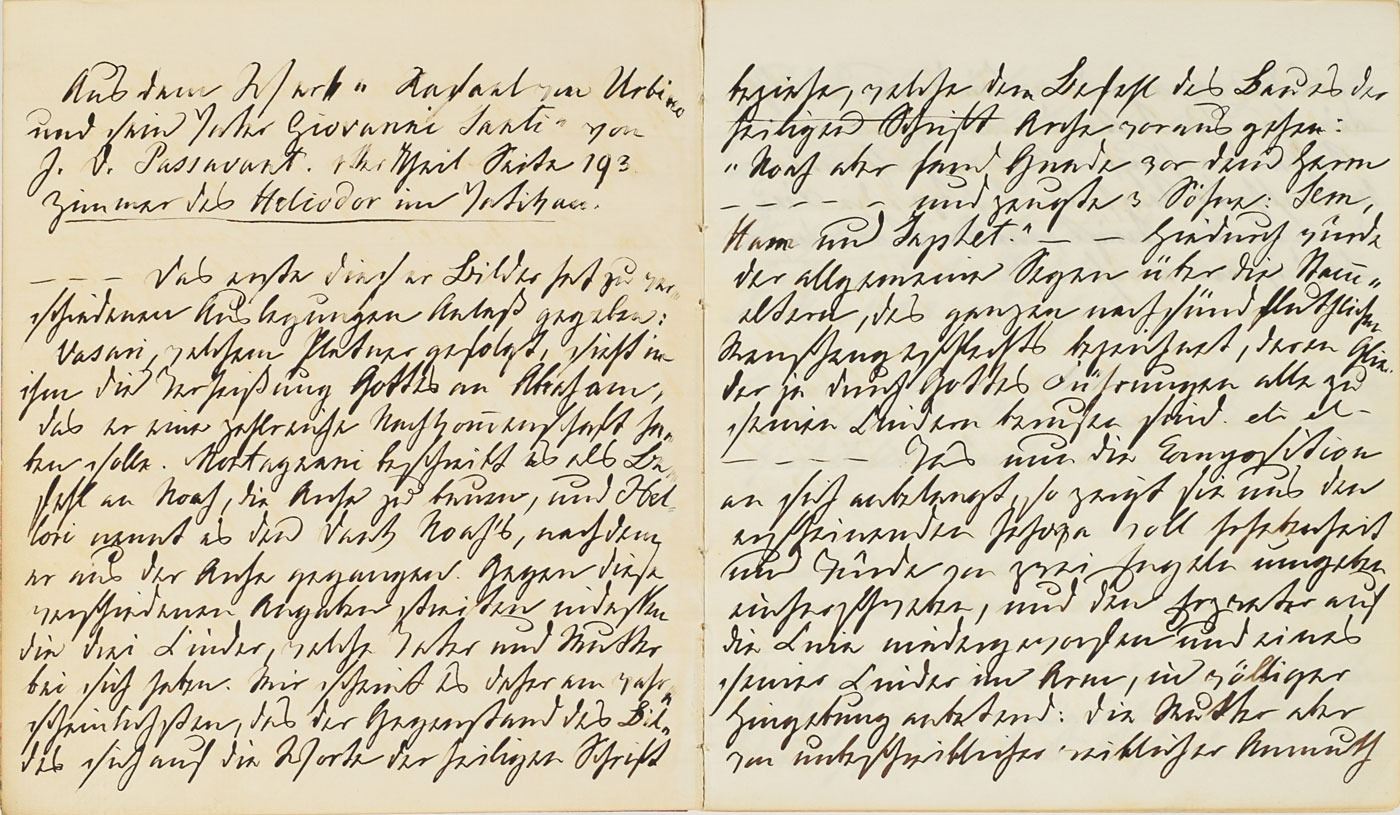 Aus dem Werk „Rafael von Urbino
und sein Vater Giovanni Santi" von
J. D. Passavant. Theil Seite 193
Zimmer des Heliodor im Vatikan.
— — — Das erste dieser Bilder hat zu ver-
schiedenen Auslegungen Anlaß gegeben:
Vasari, welchem Platner gefolgt, sieht in
ihm die Verheißung Gottes an Abraham,
das er eine zahlreiche Nachkom̄enschaft ha-
ben solle. Montagnani beschreibt es als Be-
fehl an Noah, die Arche zu bauen, und Bel-
lori nennt es den Dank Noah's, nachdem
er aus der Arche gegangen. Gegen diese
verschiedenen Angaben streiten indessen
die drei Kinder, welche Vater und Mutter
bei sich haben. Mir scheint es daher am wahr-
scheinlichsten, das der Gegenstand des Bil-
des sich auf die Worte der heiligen Schrift
beziehe, welche dem Befehl des Baues der
heiligen Schrift Arche voraus gehen:
„Noah aber fand Gnade vor dem Herrn
— — — — — und zeugte 3 Söhne: Sem,
Ham und Japhet." — — Hiedurch würde
der allgemeine Segen über die Stam̄-
eltern, des ganzen nachsündfluthlichen
Menschengeschlechts bezeichnet, deren Glie-
der ja durch Gottes Führungen alle zu
seinen Kindern berufen sind. etc etc —
— — — — Was nun die Composition
an sich anbelangt, so zeigt sie uns den
erscheinenden Jehova voll Erhabenheit
und Würde von zwei Engeln umgeben
einherschweben, und den Erzvater auf
die Knie niedergeworfen und eines
seiner Kinder im Arm, in völliger
Hingebung anbetend: die Mutter aber
von unbeschreiblicher weiblicher Anmuth